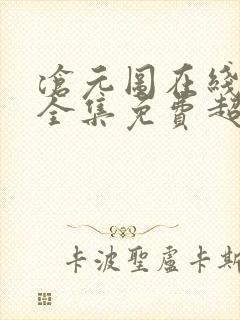 滄元圖在綫
全集免費超
卡波聖盧卡斯